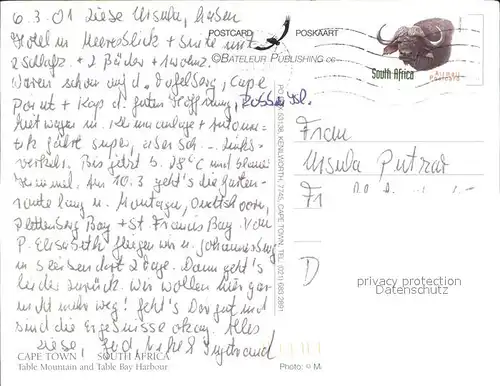 6.3.01 Liebe Ursula, haben
Hotel m Meeresblick + Suite mit
POSTCARD POSKAART
2 Schlafz. + 2 Bäder + 1 Wohnz.
©BATELEUR PUBLISHING CC
South Africa
AIRMAIL POSTCARD
Waren schon auf d. Tafelberg, Cape
Point + Kap d. guten Hoffnung, Robben Isl.
Mietwagen m. Klimaanlage + Automa-
tik fährt super, aber Links-
verkehr. Bis jetzt 28°C und blauer
Himmel. Am 10.3 geht's die Garten-
route lang n. Montagu, Oudtshoorn,
Plettenberg Bay + St. Francis Bay. Von
P. Elisabeth fliegen wir n. Johannesburg
u bleiben dort 2 Tage. Dann geht's
leider zurück. Wir wollen hier gar
nicht mehr weg! Geht's Dir gut und
sind die Ergebnisse okay. Alles
Liebe,
Frau
Ursula
D
privacy protection
Datenschutz
CAPE TOWN SOUTH AFRICA
Table Mountain and Table Bay Harbour
Photo: © M
PO BOX 53138, KENILWORTH, 7745, CAPE TOWN. TEL 021